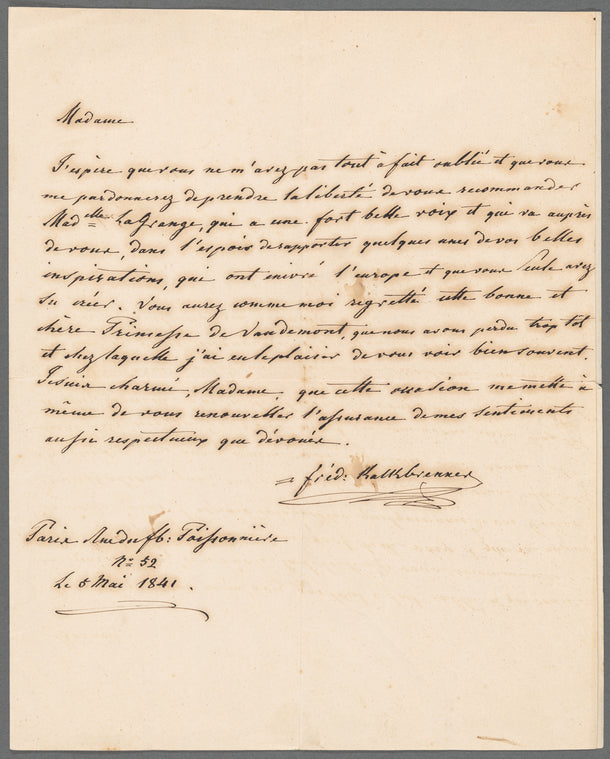 Madame
J'espère que vous ne m'avez pas tout à fait oublié et que vous
me pardonnerez de prendre la liberté de vous recommander
Mad<sup>elle</sup> LaGrange, qui a une fort belle voix et qui va auprès
de vous, dans l'espoir de rapporter quelques unes de vos belles
inspirations, qui ont enivré l'europe et que vous seule avez
su créer. Vous aurez comme moi regretté cette bonne et
chère Princesse de Vaudemont, que nous avons perdu trop tot
et chez laquelle j'ai eu le plaisir de vous voir bien souvent.
Je suis charmé, Madame, que cette occasion me mette à
même de vous renouveller l'assurance de mes sentiments
aussi respectueux que dévoués.
fréd: Kalkbrenner
Paris Rue du fb: Poissonnière
N° 52
Le 5 Mai 1841.